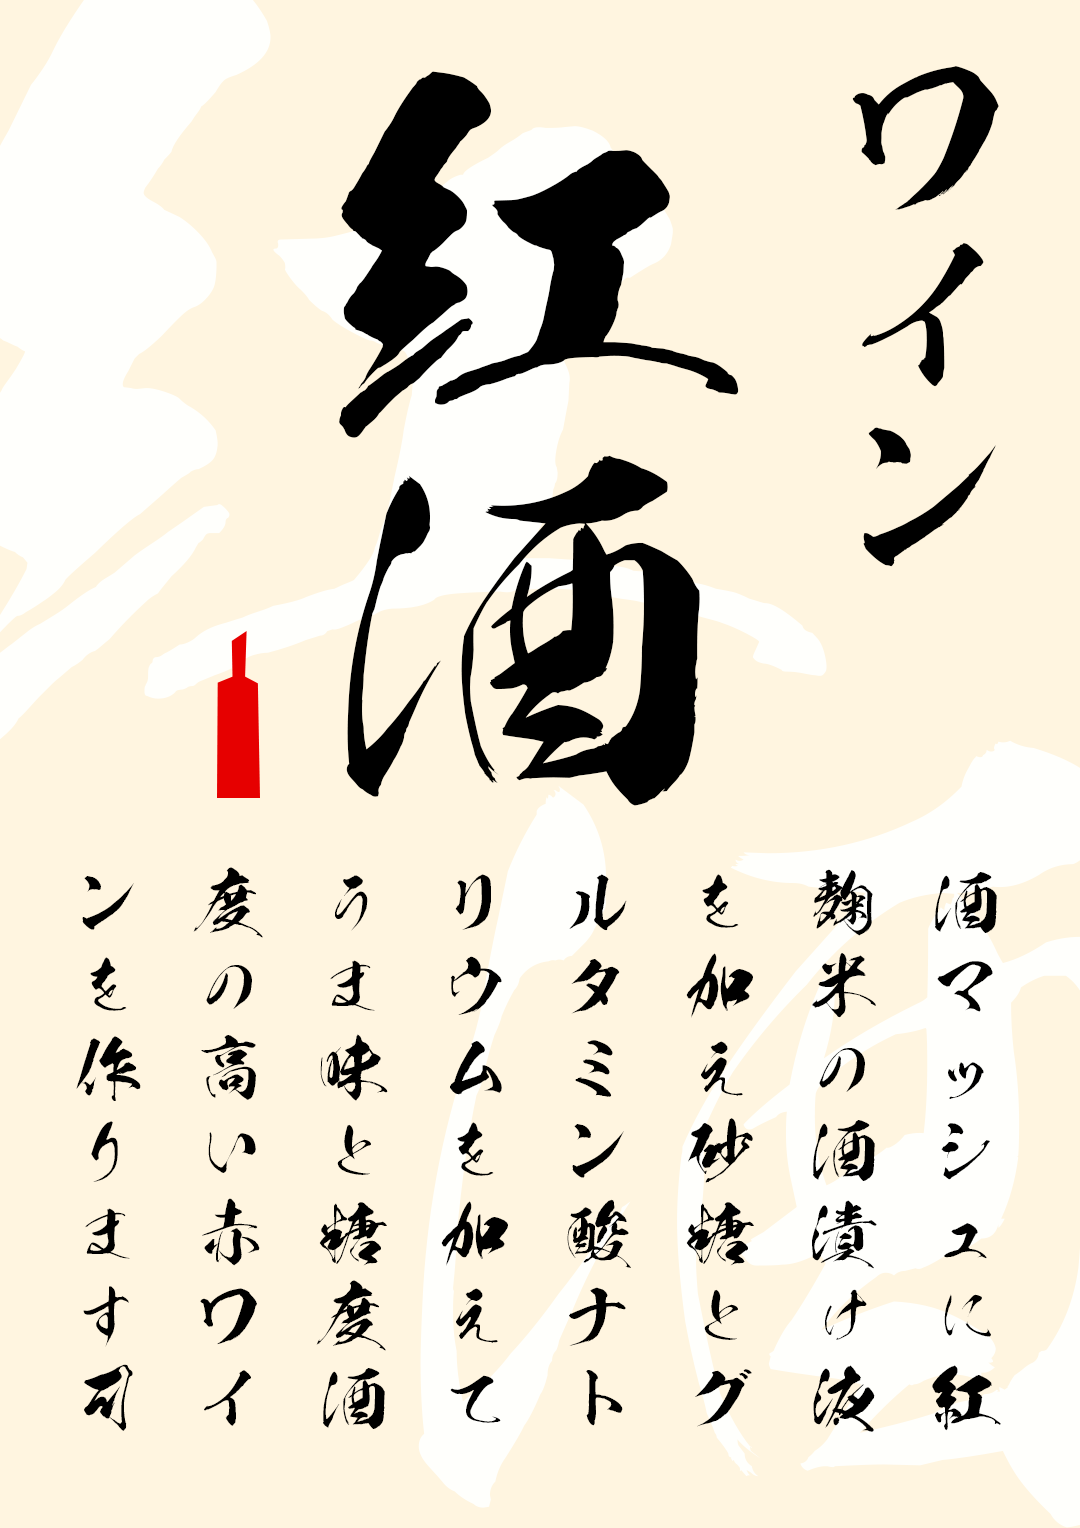 ワイン
红酒
酒マッシュに紅
麹米の酒漬け液
を加え砂糖とグ
ルタミン酸ナト
リウムを加えて
うま味と糖度酒
度の高い赤ワイ
ンを作ります司